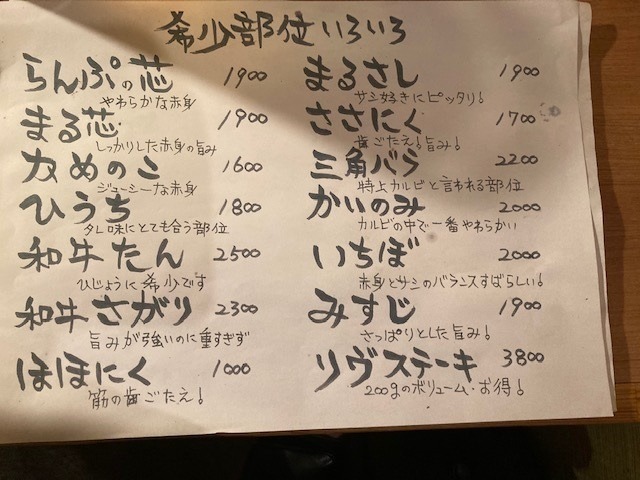 希少部位いろいろ
らんぷの芯 1900
やわらかな赤身
まる芯 1900
しっかりした赤身の旨み
かめのこ 1600
ジューシーな赤身
ひうち 1800
タレ味にとても合う部位
和牛たん 2500
ひじょうに希少です
和牛さがり 2300
旨みが強いのに重すぎず
ほほにく 1000
筋の歯ごたえ!
まるさし 1900
サシ好きにピッタリ!
ささにく 1700
歯ごたえ!旨み!
三角バラ 2200
特上カルビと言われる部位
かいのみ 2000
カルビの中で一番やわらかい
いちぼ 2000
赤身とサシのバランスすばらしい!
みすじ 1900
さっぱりとした旨み!
リヴステーキ 3800
200gのボリューム・お得!